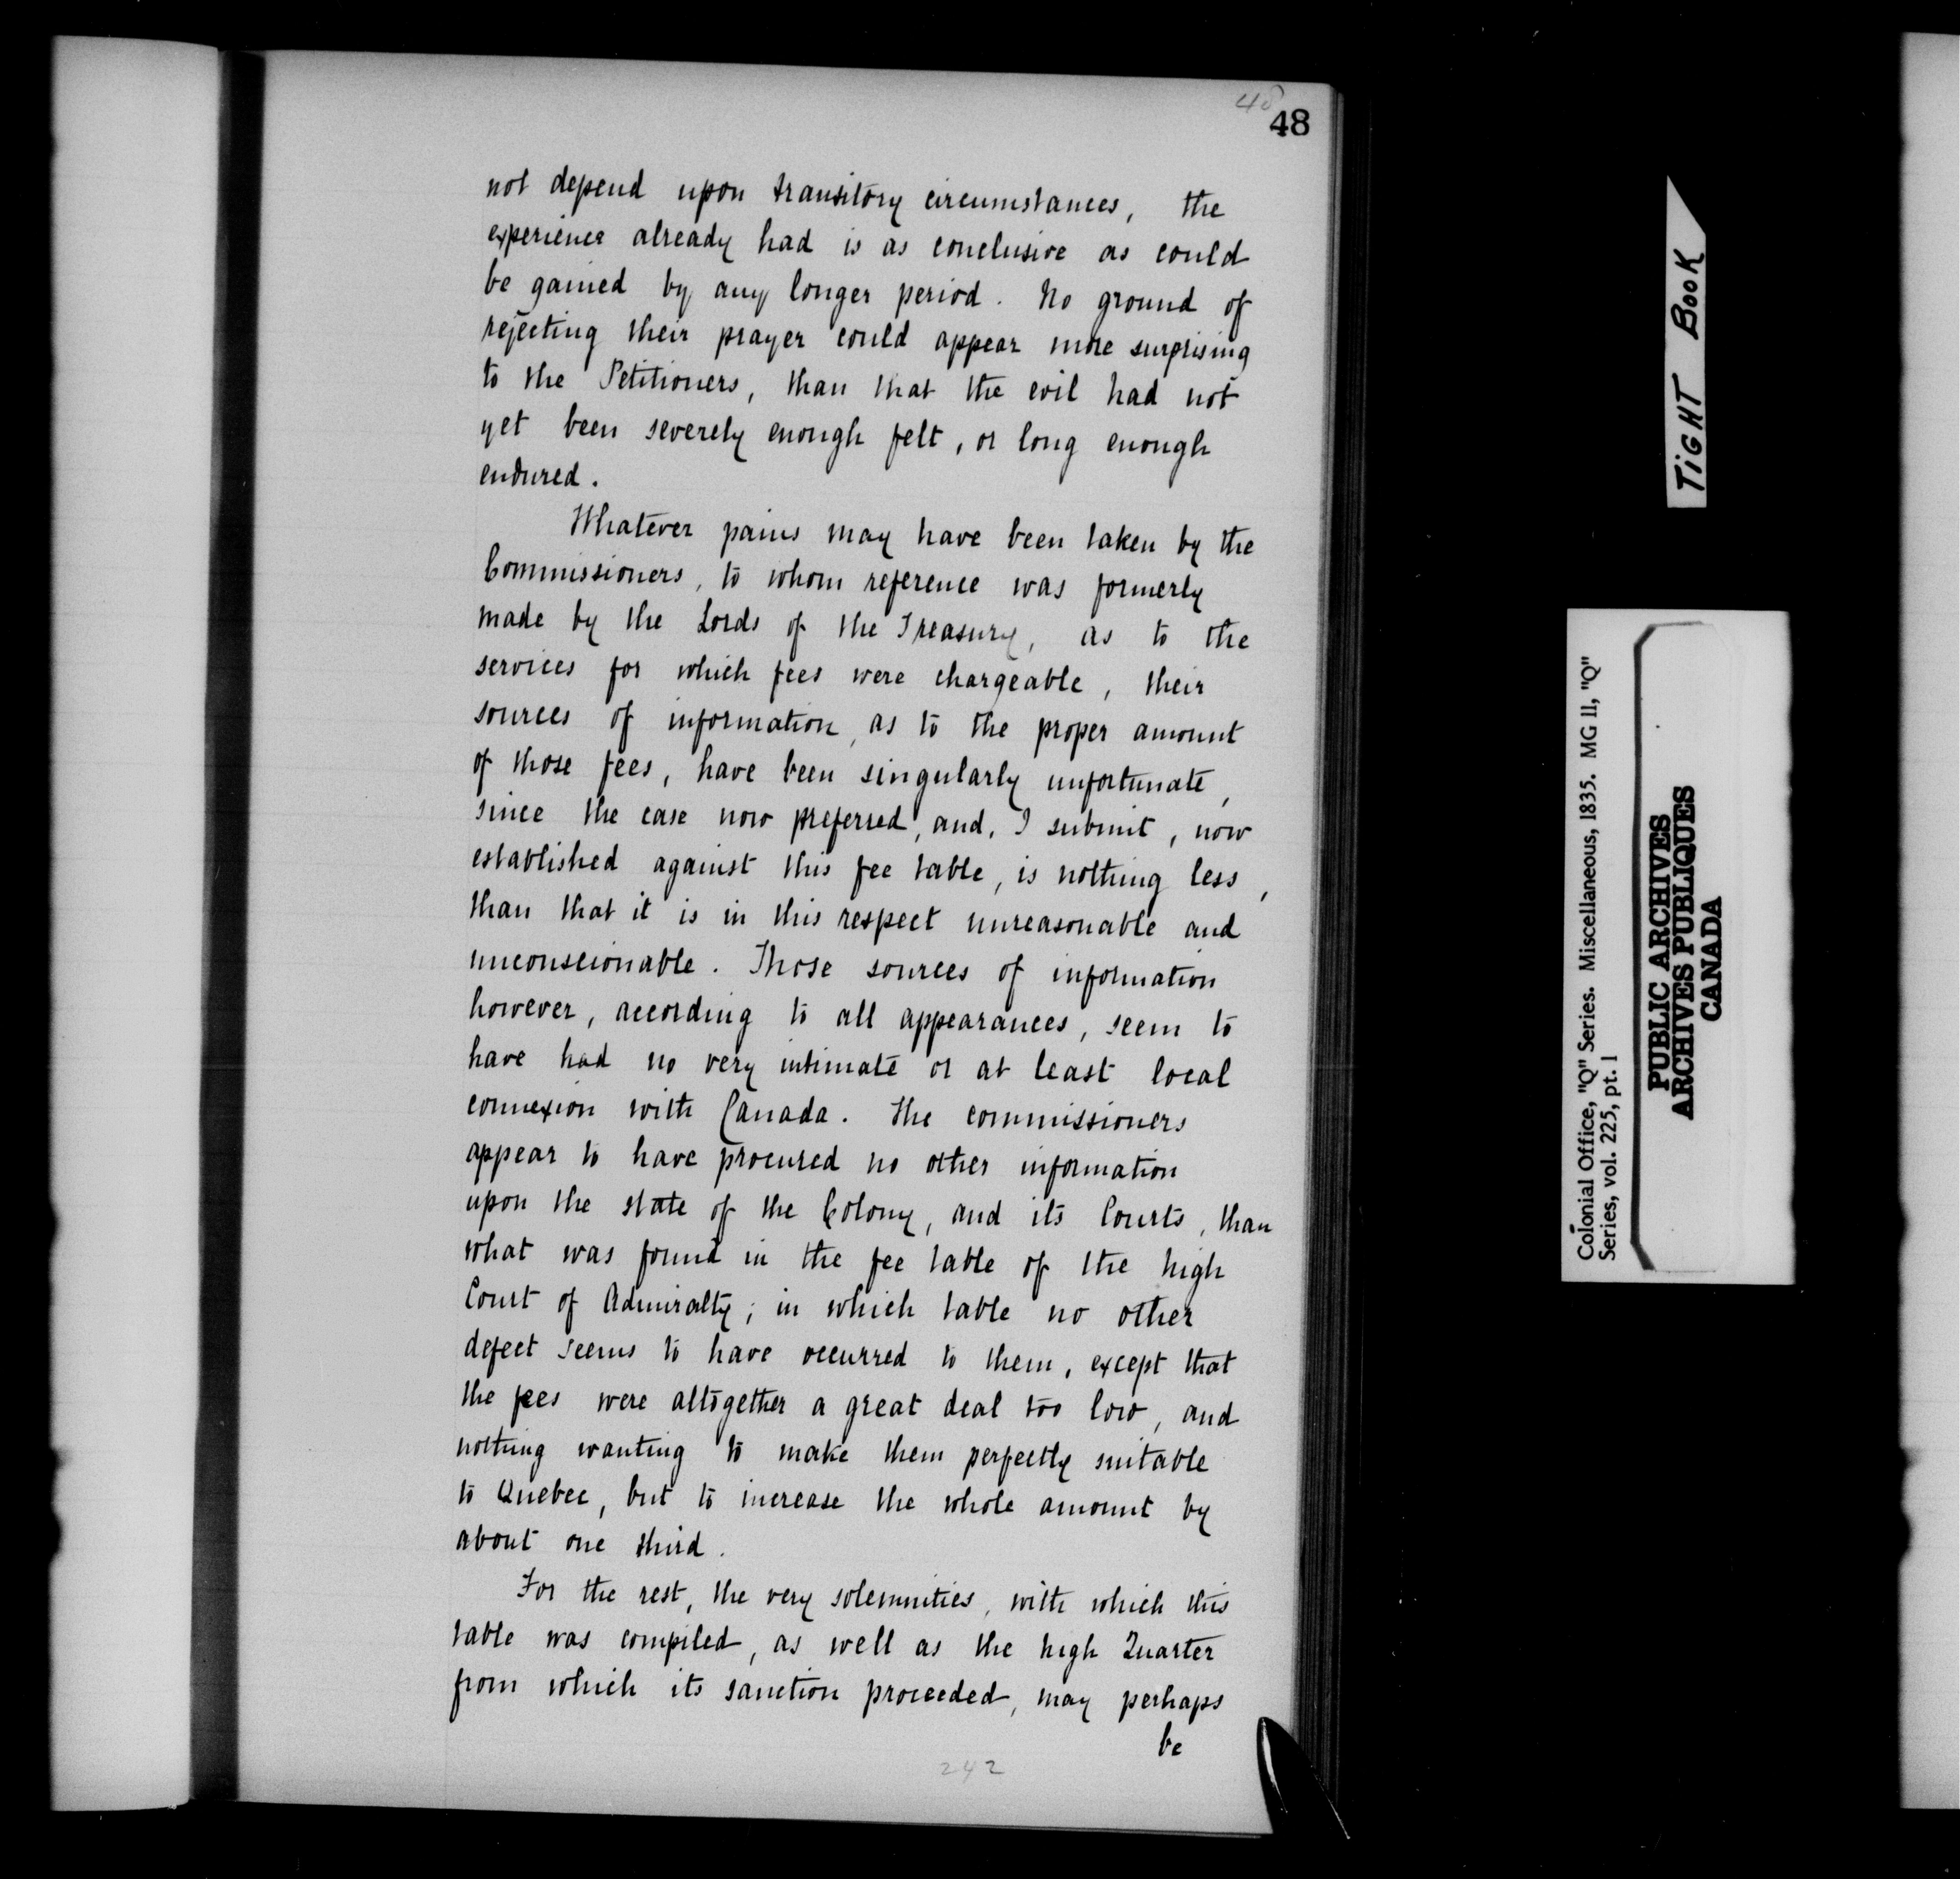 48
48
not depend upon transitory circumstances, the
experience already had is as conclusive as could
be gained by any longer period. No ground of
rejecting their prayer could appear more surprising
to the Petitioners, than that the evil had not
yet been severely enough felt, or long enough
endured.
Whatever pains may have been taken by the
Commissioners, to whom reference was formerly
made by the Lords of the Treasury, as to the
services for which fees were chargeable, their
sources of information, as to the proper amount
of those fees, have been singularly unfortunate,
since the case now preferred, and, I submit, now
established against this fee table, is nothing less,
than that it is in this respect unreasonable and
unconscionable. Those sources of information
however, according to all appearances, seem to
have had no very intimate or at least local
connexion with Canada. The commissioners
appear to have procured no other information
upon the state of the Colony, and its Courts, than
what was found in the fee table of the high
Court of Admiralty; in which table no other
defect seems to have occurred to them, except that
the fees were altogether a great deal too low, and
nothing wanting to make them perfectly suitable
to Quebec, but to increase the whole amount by
about one third.
For the rest, the very solemnities, with which this
table was compiled, as well as the high Quarter
from which its sanction proceeded, may perhaps
be
242
TiGHT BooK
Colonial Office, "Q" Series. Miscellaneous, 1835. MG 11, "Q"
Series, vol. 225, pt. 1
PUBLIC ARCHIVES
ARCHIVES PUBLIQUES
CANADA